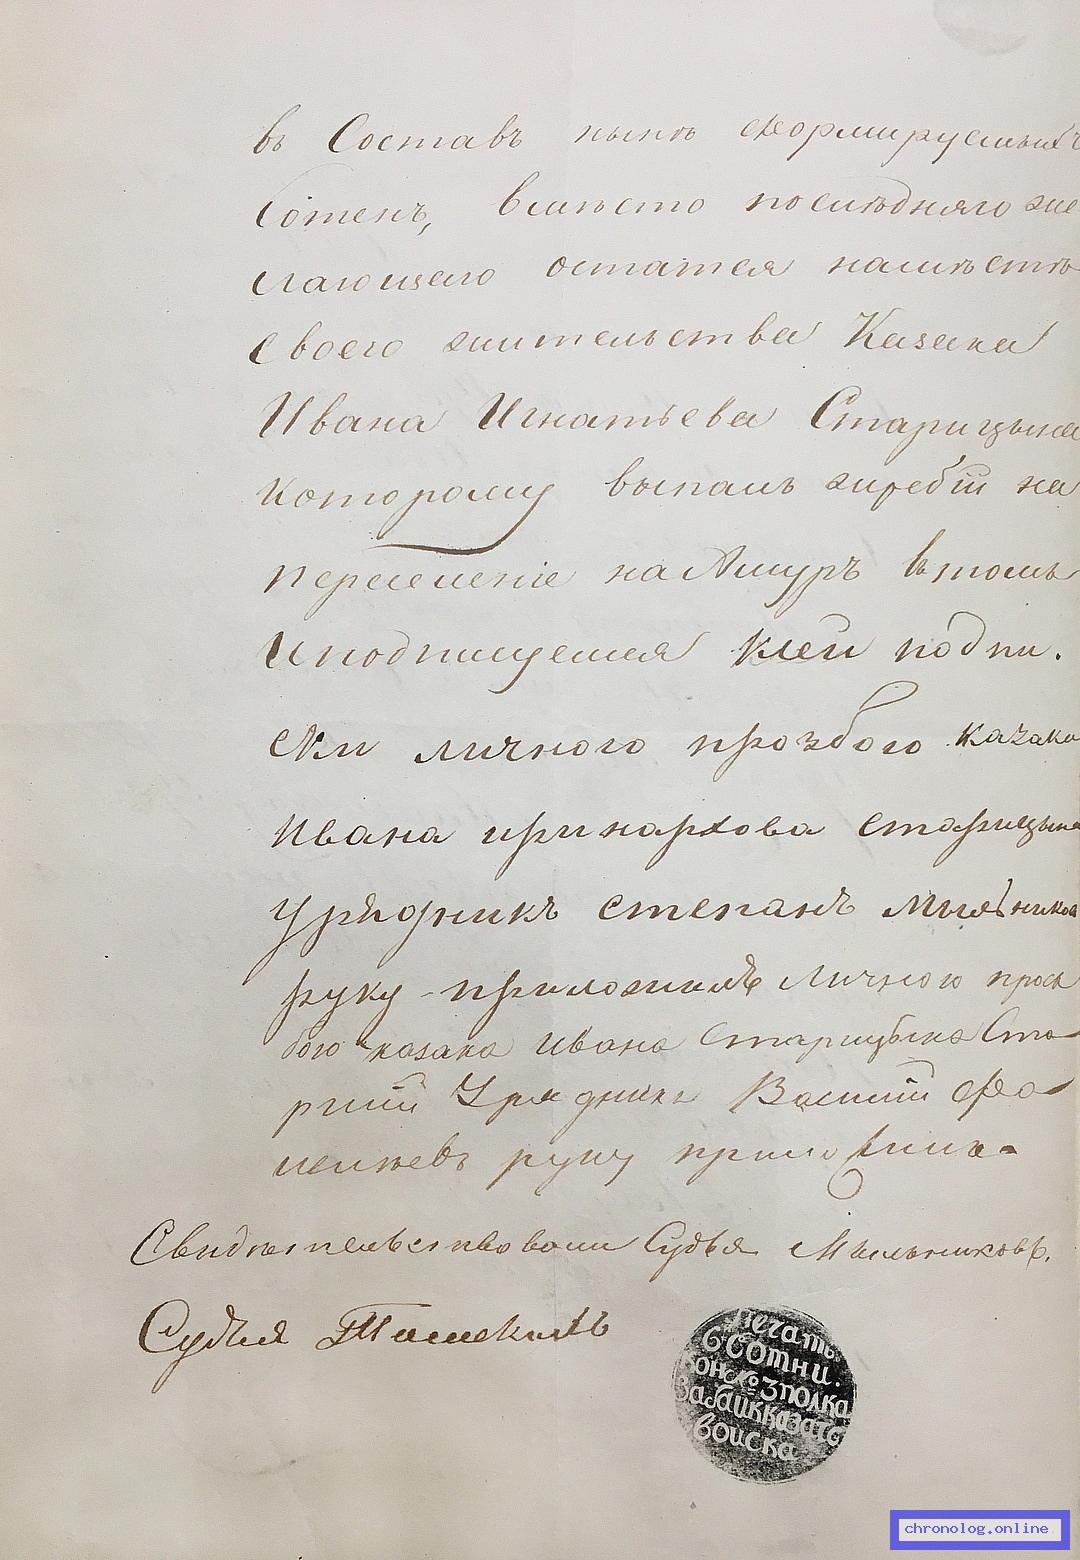 въ Составъ нынѣ формируемыхъ
Сотенъ, вмѣсто послѣдняго же
лающего остатся намѣстѣ
своего жительства Казака
Ивана Игнатьева Старицына
которому выпалъ жребій на
переселеніе на Амуръ втомъ
Иподписуемся Ксей подпи.
ски личного прозбого казака
Ивана иринархова старицына
Урядникъ степанъ мыльников
руку приложилъ Личною прось
бою казака Ивана Старицына Ста
ршій Урядникъ Василій
руку приложилъ
Свидѣтельствовали Судья Мыльниковъ,
Судья
Печать
6 Сотни.
Конна 3 полка
Забайк казаго
воиска
chronolog.online